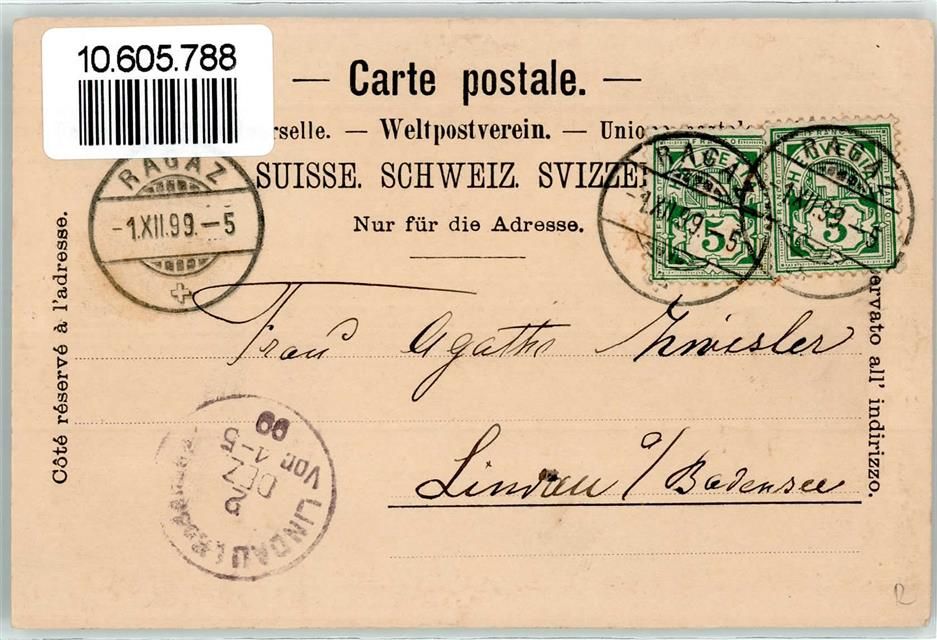 10.605.788
— Carte postale. —
rselle. — Weltpostverein. — Union postale
SUISSE. SCHWEIZ. SVIZZE
Nur für die Adresse.
RAGAZ
-1.XII.99.-5
RAGAZ
-1.XII.99.-5
HELVETIA
5
RAGAZ
-1.XII.99.-5
HELVETIA
5
Côté réservé à l'adresse.
ervato all' indirizzo.
Frau Agathe Zwisler
Lindau a/ Bodensee
LINDAU
2
DEZ
Vor. 4-5
99
R